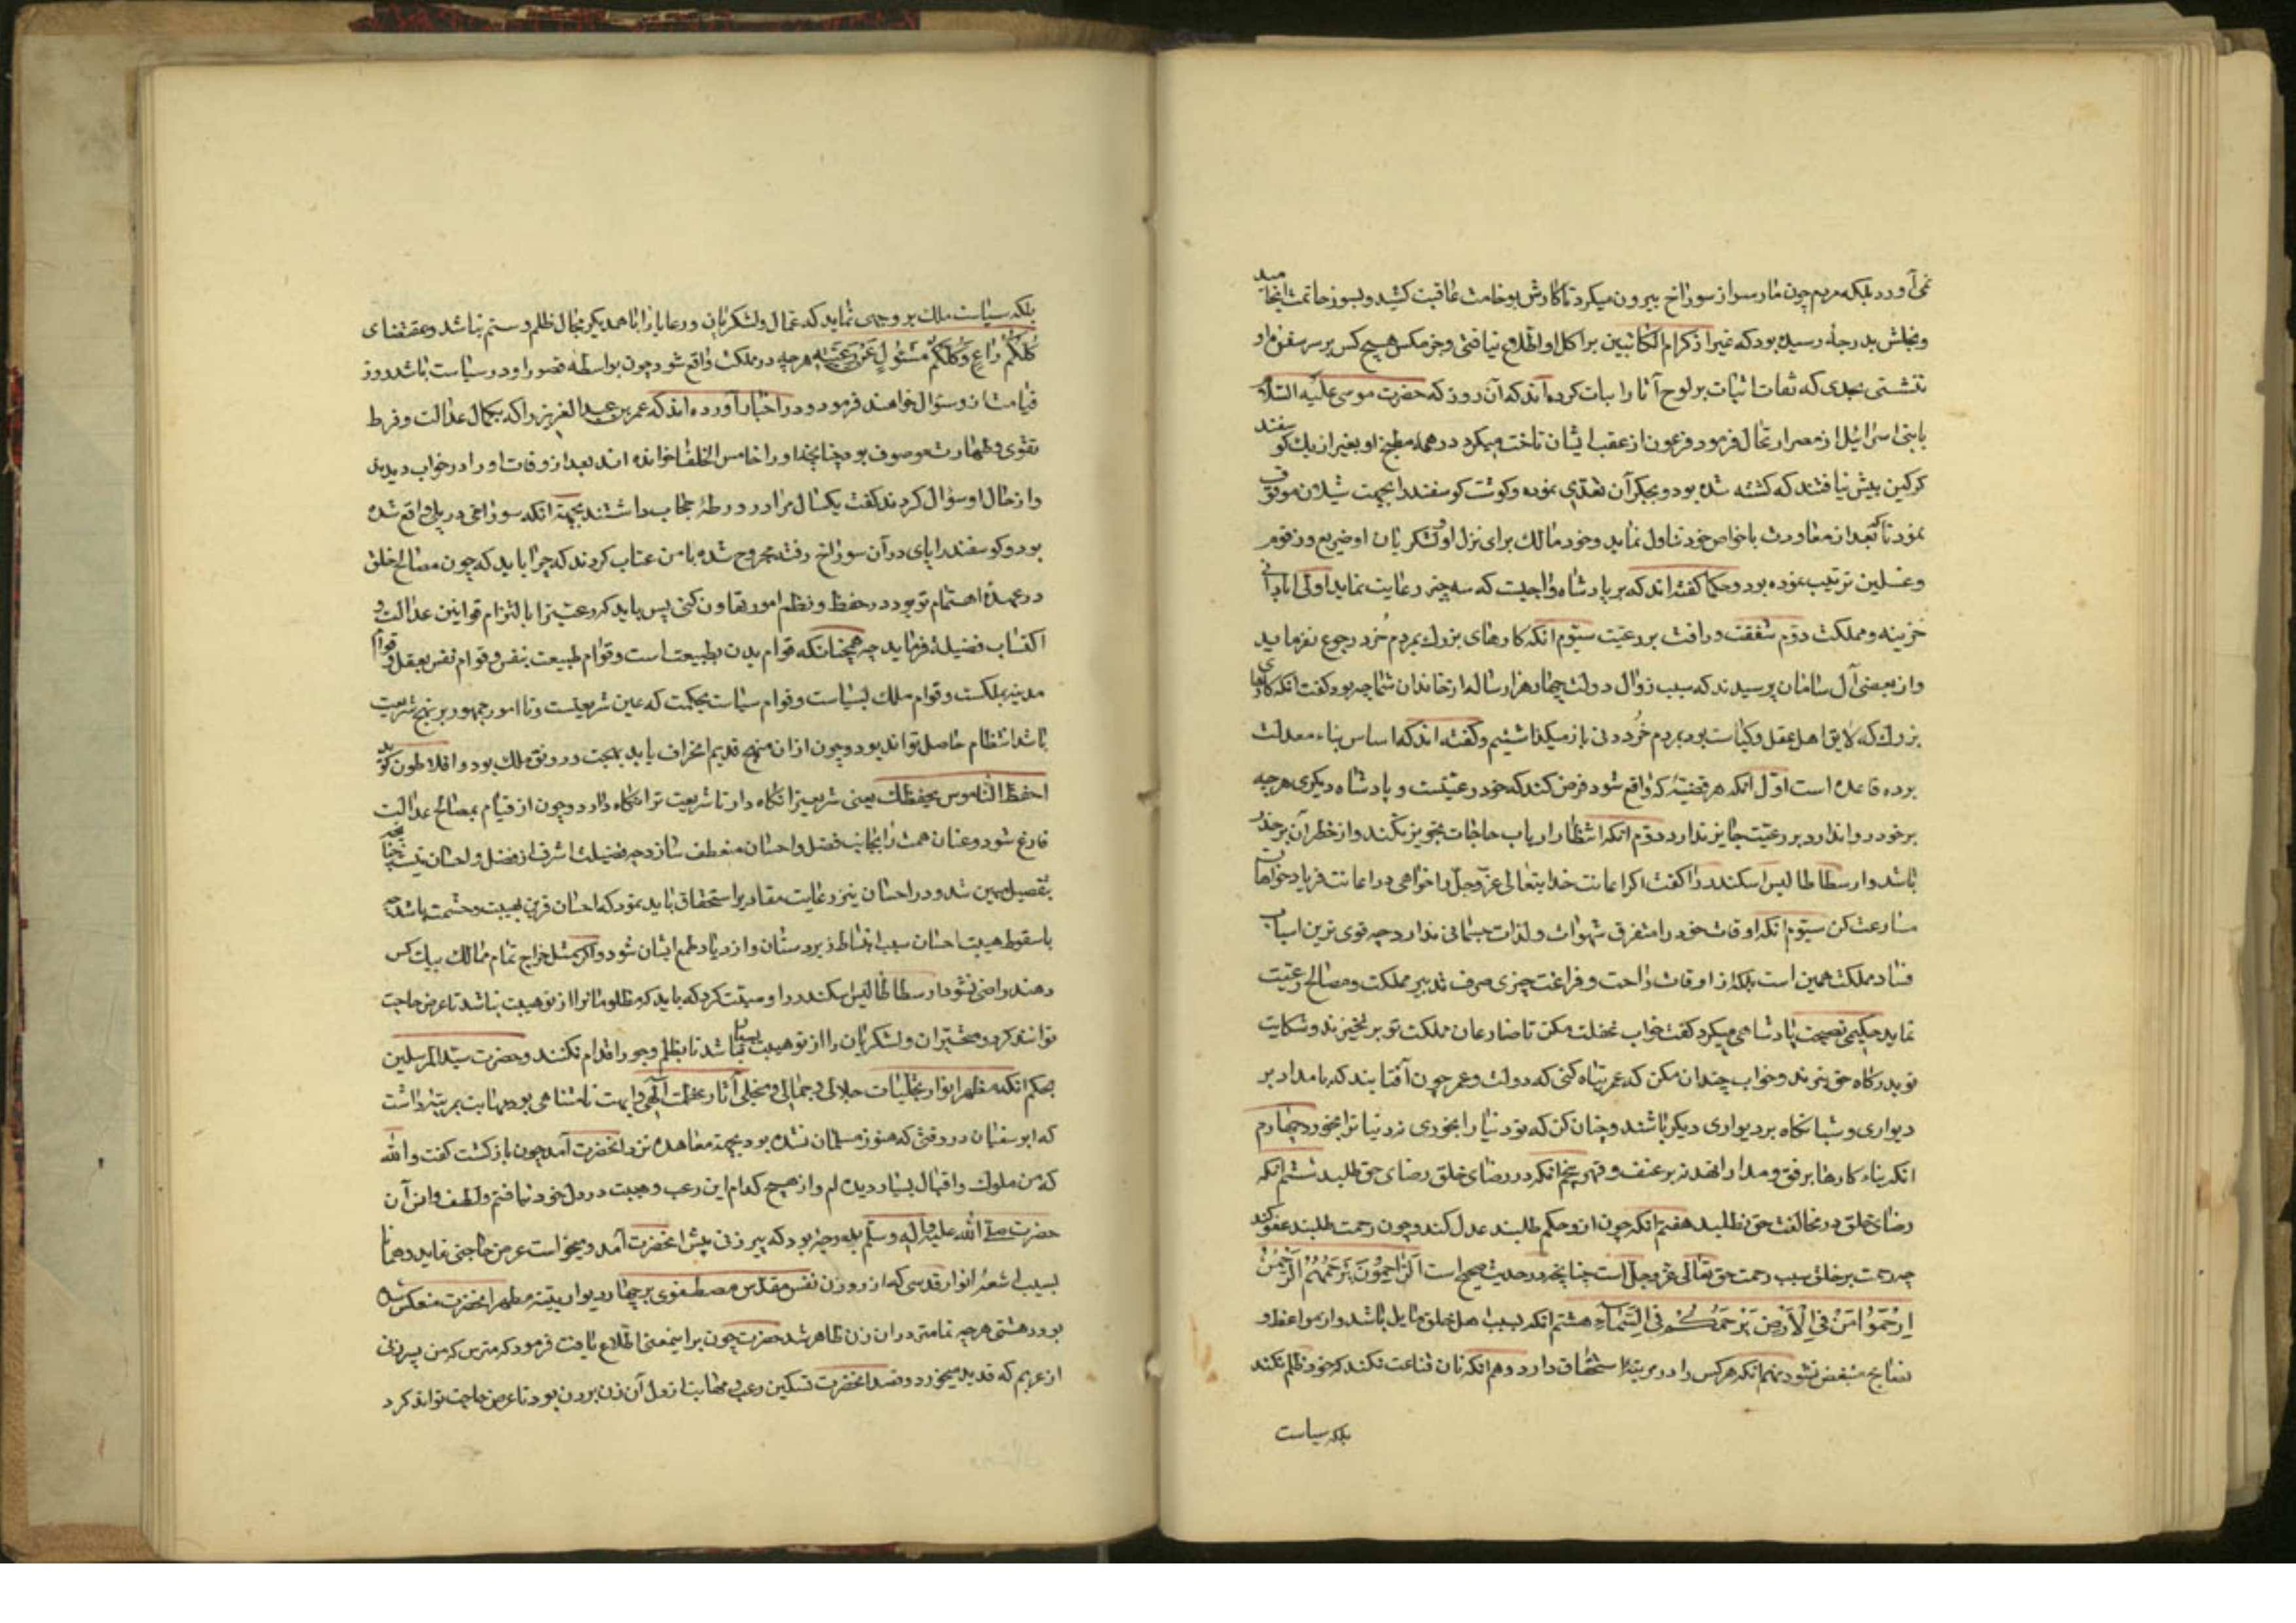 نمی‌آورد بلکه مردم چون مار سر از سوراخ بیرون میکرد تا کارش بوخامت عاقبت کشید و بسوز خاتمت انجامید
و بخلش بدرجهٔ رسیده بود که غیر از کرام الکاتبین بر اکل او اطلاع نیافتی و جز مکس هیچ کس بر سر سفرهٔ او
ننشستی بحدی که ثقات اثبات بر لوح آثار اثبات کرده‌اند که آن روز که حضرت موسی علیه السلام
با بنی اسرائیل از مصر ارتحال فرمود و فرعون از عقب ایشان تاخت میکرد در همه مطبخ او بغیر از یک کوسفند
کرکین بیش نیافتند که کشته شده بود و بجکر آن تغدی نموده و کوشت کوسفند را بجهت شیلان موقوف
نمود تا که بعد از معاودت با خواص خود تناول نماید و خود مالک برای نزل او و لشکریان او ضریع و زقوم
و غسلین ترتیب نموده بود و حکما کفته‌اند که بر پادشاه واجبست که سه چیز رعایت نماید اول آبادانی
خزینه و مملکت دوّم شفقت و رافت بر رعیّت سیّوم انکه کارهای بزرک بمردم خُرد رجوع نفرماید
و از بعضی آل سامان پرسیدند که سبب زوال دولت چهار هزار ساله از خاندان شما چه بود کفت انکه کارهای
بزرک که لایق اهل عقل و کیاست بود بمردم خُرد دنی باز میکذاشتیم و کفته‌اند که اساس بناء معدلت
بر ده قاعده است اوّل انکه هر قضیّهٔ که واقع شود فرض کند که خود رعیّتست و پادشاه دیکری هرچه
بر خود روا ندارد بر رعیّت جایز ندارد دوّم انکه انتظار ارباب حاجات تجویز نکند و از خطر آن بر حذر
باشد و ارسطاطالیس اسکندر را کفت اکر اعانت خدایتعالی عزّ و جلّ را خواهی در اعانت فریاد خواهان
مسارعت کن سیّوم انکه اوقات خود را متفرق شهوات و لذات جسمانی ندارد چه قوی ترین اسباب
فساد مملکت همین است بلکه از اوقات راحت و فراغت چیزی صرف تدبیر مملکت و مصالح رعیّت
نماید حکیمی نصیحت پادشاهی میکرد کفت خواب غفلت مکن تا ضارعان مملکت تو بر نخیزند و شکایت
تو بدرکاه حق نبرند و خواب چندان مکن که عمر تباه کنی که دولت و عمر چون آفتابند که بامداد بر
دیواری و شبانکاه بر دیواری دیکر باشند و چنان کن که تو دنیا را بخوری نه دنیا ترا بخورد چهارم
انکه بناء کارها بر رفق و مدارا نهد نه بر عنف و قهر پنجم انکه در رضای خلق رضای حق طلبد ششم انکه
رضای خلق در مخالفت حق نطلبد هفتم انکه چون ازو حکم طلبند عدل کند و چون رحمت طلبند عفو کند
چه رحمت بر خلق سبب رحمت حق تعالی عزّ و جلّ است چنانچه در حدیث صحیح است اَلرّاحِمُونَ یَرْحَمُهُمُ الرَّحْمنُ
اِرْحَمُوْا مَنْ فِی الْاَرْضِ یَرْحَمْکُمْ مَنْ فِی السَّمآءِ هشتم انکه بصحبت اهل حق مایل باشد و از مواعظ و
نصایح منقبض نشود نهم انکه هر کس را در مرتبهٔ استحقاق دارد دهم انکه بان قناعت نکند که خود ظلم نکند
بلکه سیاست
بلکه سیاست ملک بر وجهی نماید که عمال و لشکریان و رعایا را با همدیکر مجال ظلم و ستم نباشد و بمقتضای
کُلُّکُمْ راعٍ وَ کُلُّکُمْ مَسْئولٌ عَنْ رَعِیَّتِه هرچه در مملکت واقع شود چون بواسطه قصور او در سیاست باشد روز
قیامت ازو سؤال خواهند فرمود و در اخبار آورده‌اند که عمر بن عبد العزیز را که بکمال عدالت و فرط
تقوی و طهارت موصوف بود چنانچه او را خامس الخلفا خوانده‌اند بعد از وفات او را در خواب دیدند
و از حال او سؤال کردند کفت یکسال مرا در ورطهٔ حجاب داشتند بجهة انکه سوراخی در پلی واقع شده
بود و کوسفند را پای در آن سوراخ رفته مجروح شده با من عتاب کردند که چرا باید که چون مصالح خلق
در عهدهٔ اهتمام تو بود در حفظ و نظم امور تهاون کنی پس باید که رعیت را بالتزام قوانین عدالت و
اکتساب فضیلة فرماید چه همچنانکه قوام بدن بطبیعت است و قوام طبیعت بنفس و قوام نفس بعقل و قوام
مدینه بملکست و قوام ملک بسیاست و قوام سیاست بحکمت که عین شریعتست و تا امور جمهور بر نهج شریعت
باشد انتظام حاصل تواند بود و چون از ان منهج قدیم انحراف یابد بهجت و رونق ملک بود و افلاطون کوید
احفظ النّاموس یحفظک یعنی شریعت را نکاه دار تا شریعت ترا نکاه دارد و چون از قیام بمصالح عدالت
فارغ شود عنان همت را بجانب فضل و احسان منعطف سازد چه فضیلت اشرف از فضل و احسان نیست چنانچه
بتفصیل مبین شد و در احسان نیز رعایت مقادیر استحقاق باید نمود که احسان قرین هیبت و حشمت باشد چه
با سقوط هیبت احسان سبب انبساط زیردستان و ازدیاد طمع ایشان شود و اکر بمثل خراج تمام ممالک بیک کس
دهند راضی نشود ارسطاطالیس اسکندر را وصیّت کرد که باید که مظلومانرا از تو هیبت نباشد تا عرض حاجت
توانند کرد و متحیّران و لشکریان را از تو هیبت بسیار باشد تا بظلم و جور اقدام نکنند و حضرت سیّد المرسلین
بحکم انکه مظهر انوار تجلیات جلالی و جمالی و مجلی آثار عظمت الٓهی و ابهت نامتناهی بود مهابت بمرتبهٔ داشت
که ابو سفیان در وقتی که هنوز مسلمان نشده بود بجهة معاهده نزد انحضرت آمد چون باز کشت کفت واللّه
که من ملوک و اقیال بسیار دیده‌ام و از هیچ کدام این رعب و هیبت در دل خود نیافتم و لطف و انس آن
حضرت صلّی اللّه علیه و اله و سلّم بدرجهٔ بود که پیرزنی پیش انحضرت آمد و میخواست عرض حاجتی نماید و همانا
بسبب اشعهٔ انوار قدسی که از روزن نفس مقدّس مصطفوی بر چهار دیوار بنیهٔ مطهر انحضرت منعکس شده
بود دهشتی هرچه تمامتر در ان زن ظاهر شد حضرت چون بر اینمعنی اطلاع یافت فرمود که مترس که من پسر زنی
از عربم که قدید میخورد و قصد انحضرت تسکین رعب و مهابت از دل آن زن بردن بود تا عرض حاجت تواند کرد